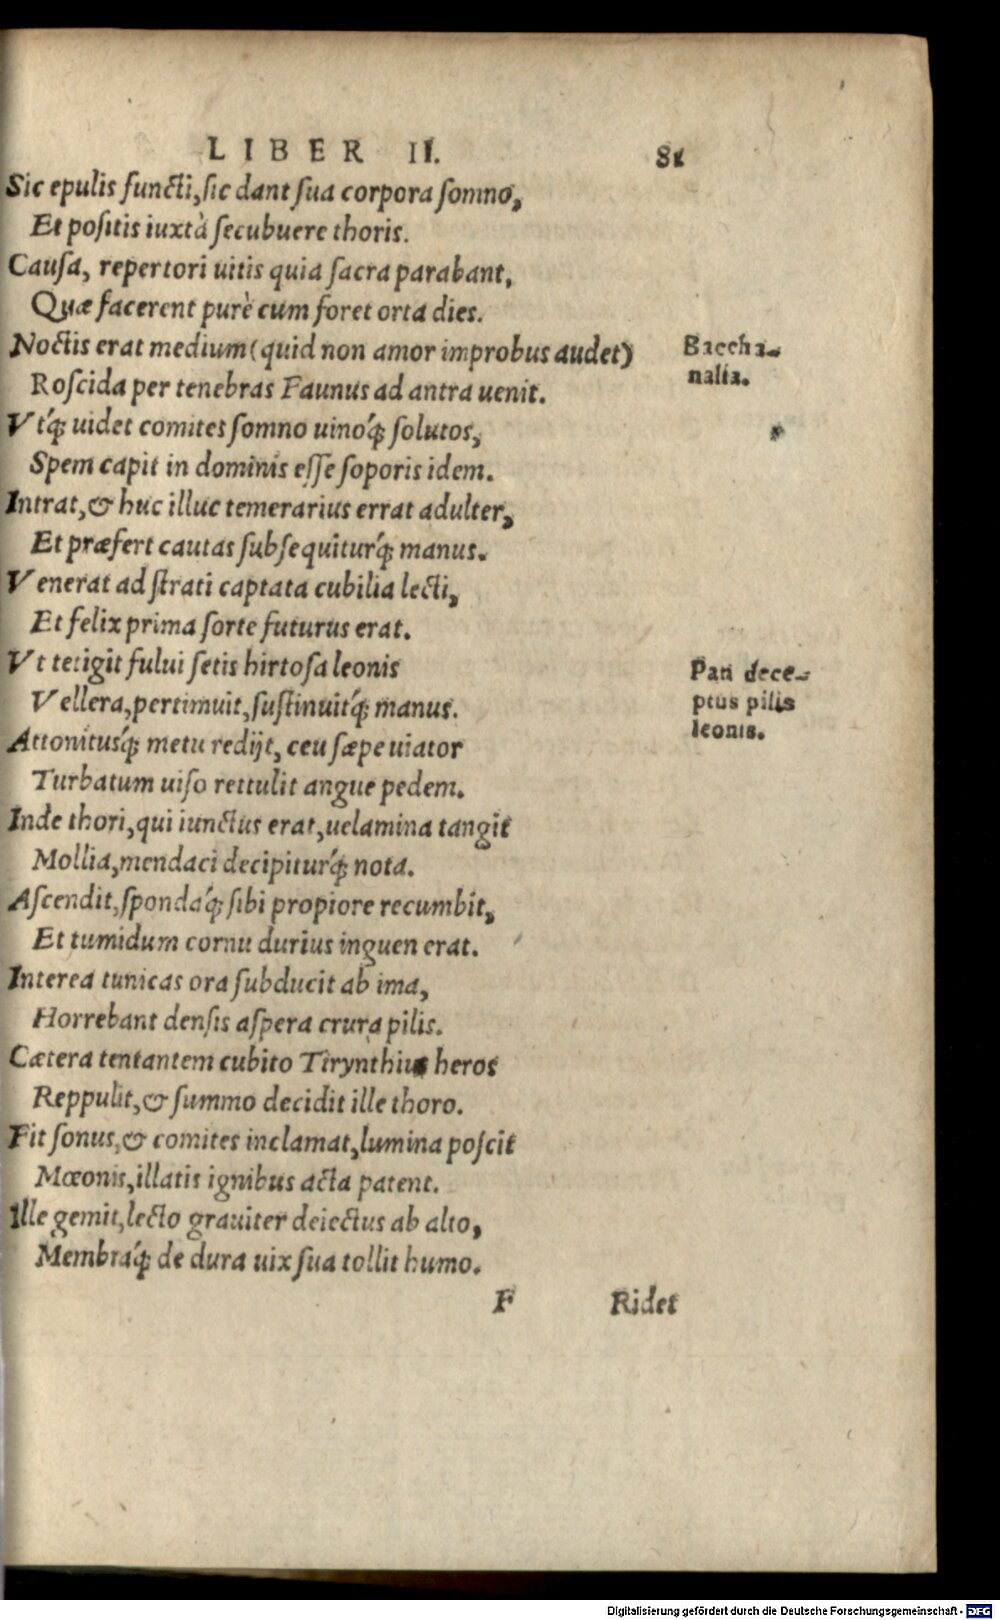 LIBER II. 81
Sic epulis functi, sic dant sua corpora somno,
Et positis iuxtà secubuere thoris.
Causa, repertori uitis quia sacra parabant,
Quæ facerent purè cum foret orta dies.
Noctis erat medium (quid non amor improbus audet)
Baccha-
nalia.
Roscida per tenebras Faunus ad antra uenit.
Vtq́; uidet comites somno uinoq́; solutos,
Spem capit in dominis esse soporis idem.
Intrat, & huc illuc temerarius errat adulter,
Et præfert cautas subsequiturq́; manus.
Venerat ad strati captata cubilia lecti,
Et felix prima sorte futurus erat.
Vt tetigit fului setis hirtosa leonis
Pan dece-
ptus pilis
leonis.
Vellera, pertimuit, sustinuitq́; manus.
Attonitusq́; metu redijt, ceu sæpe uiator
Turbatum uiso rettulit angue pedem.
Inde thori, qui iunctus erat, uelamina tangit
Mollia, mendaci decipiturq́; nota.
Ascendit, spondaq́; sibi propiore recumbit,
Et tumidum cornu durius inguen erat.
Interea tunicas ora subducit ab ima,
Horrebant densis aspera crura pilis.
Cætera tentantem cubito Tirynthius heros
Reppulit, & summo decidit ille thoro.
Fit sonus, & comites inclamat, lumina poscit
Mœonis, illatis ignibus acta patent.
Ille gemit, lecto grauiter deiectus ab alto,
Membraq́; de dura uix sua tollit humo.
F Ridet
Digitalisierung gefördert durch die Deutsche Forschungsgemeinschaft - DFG